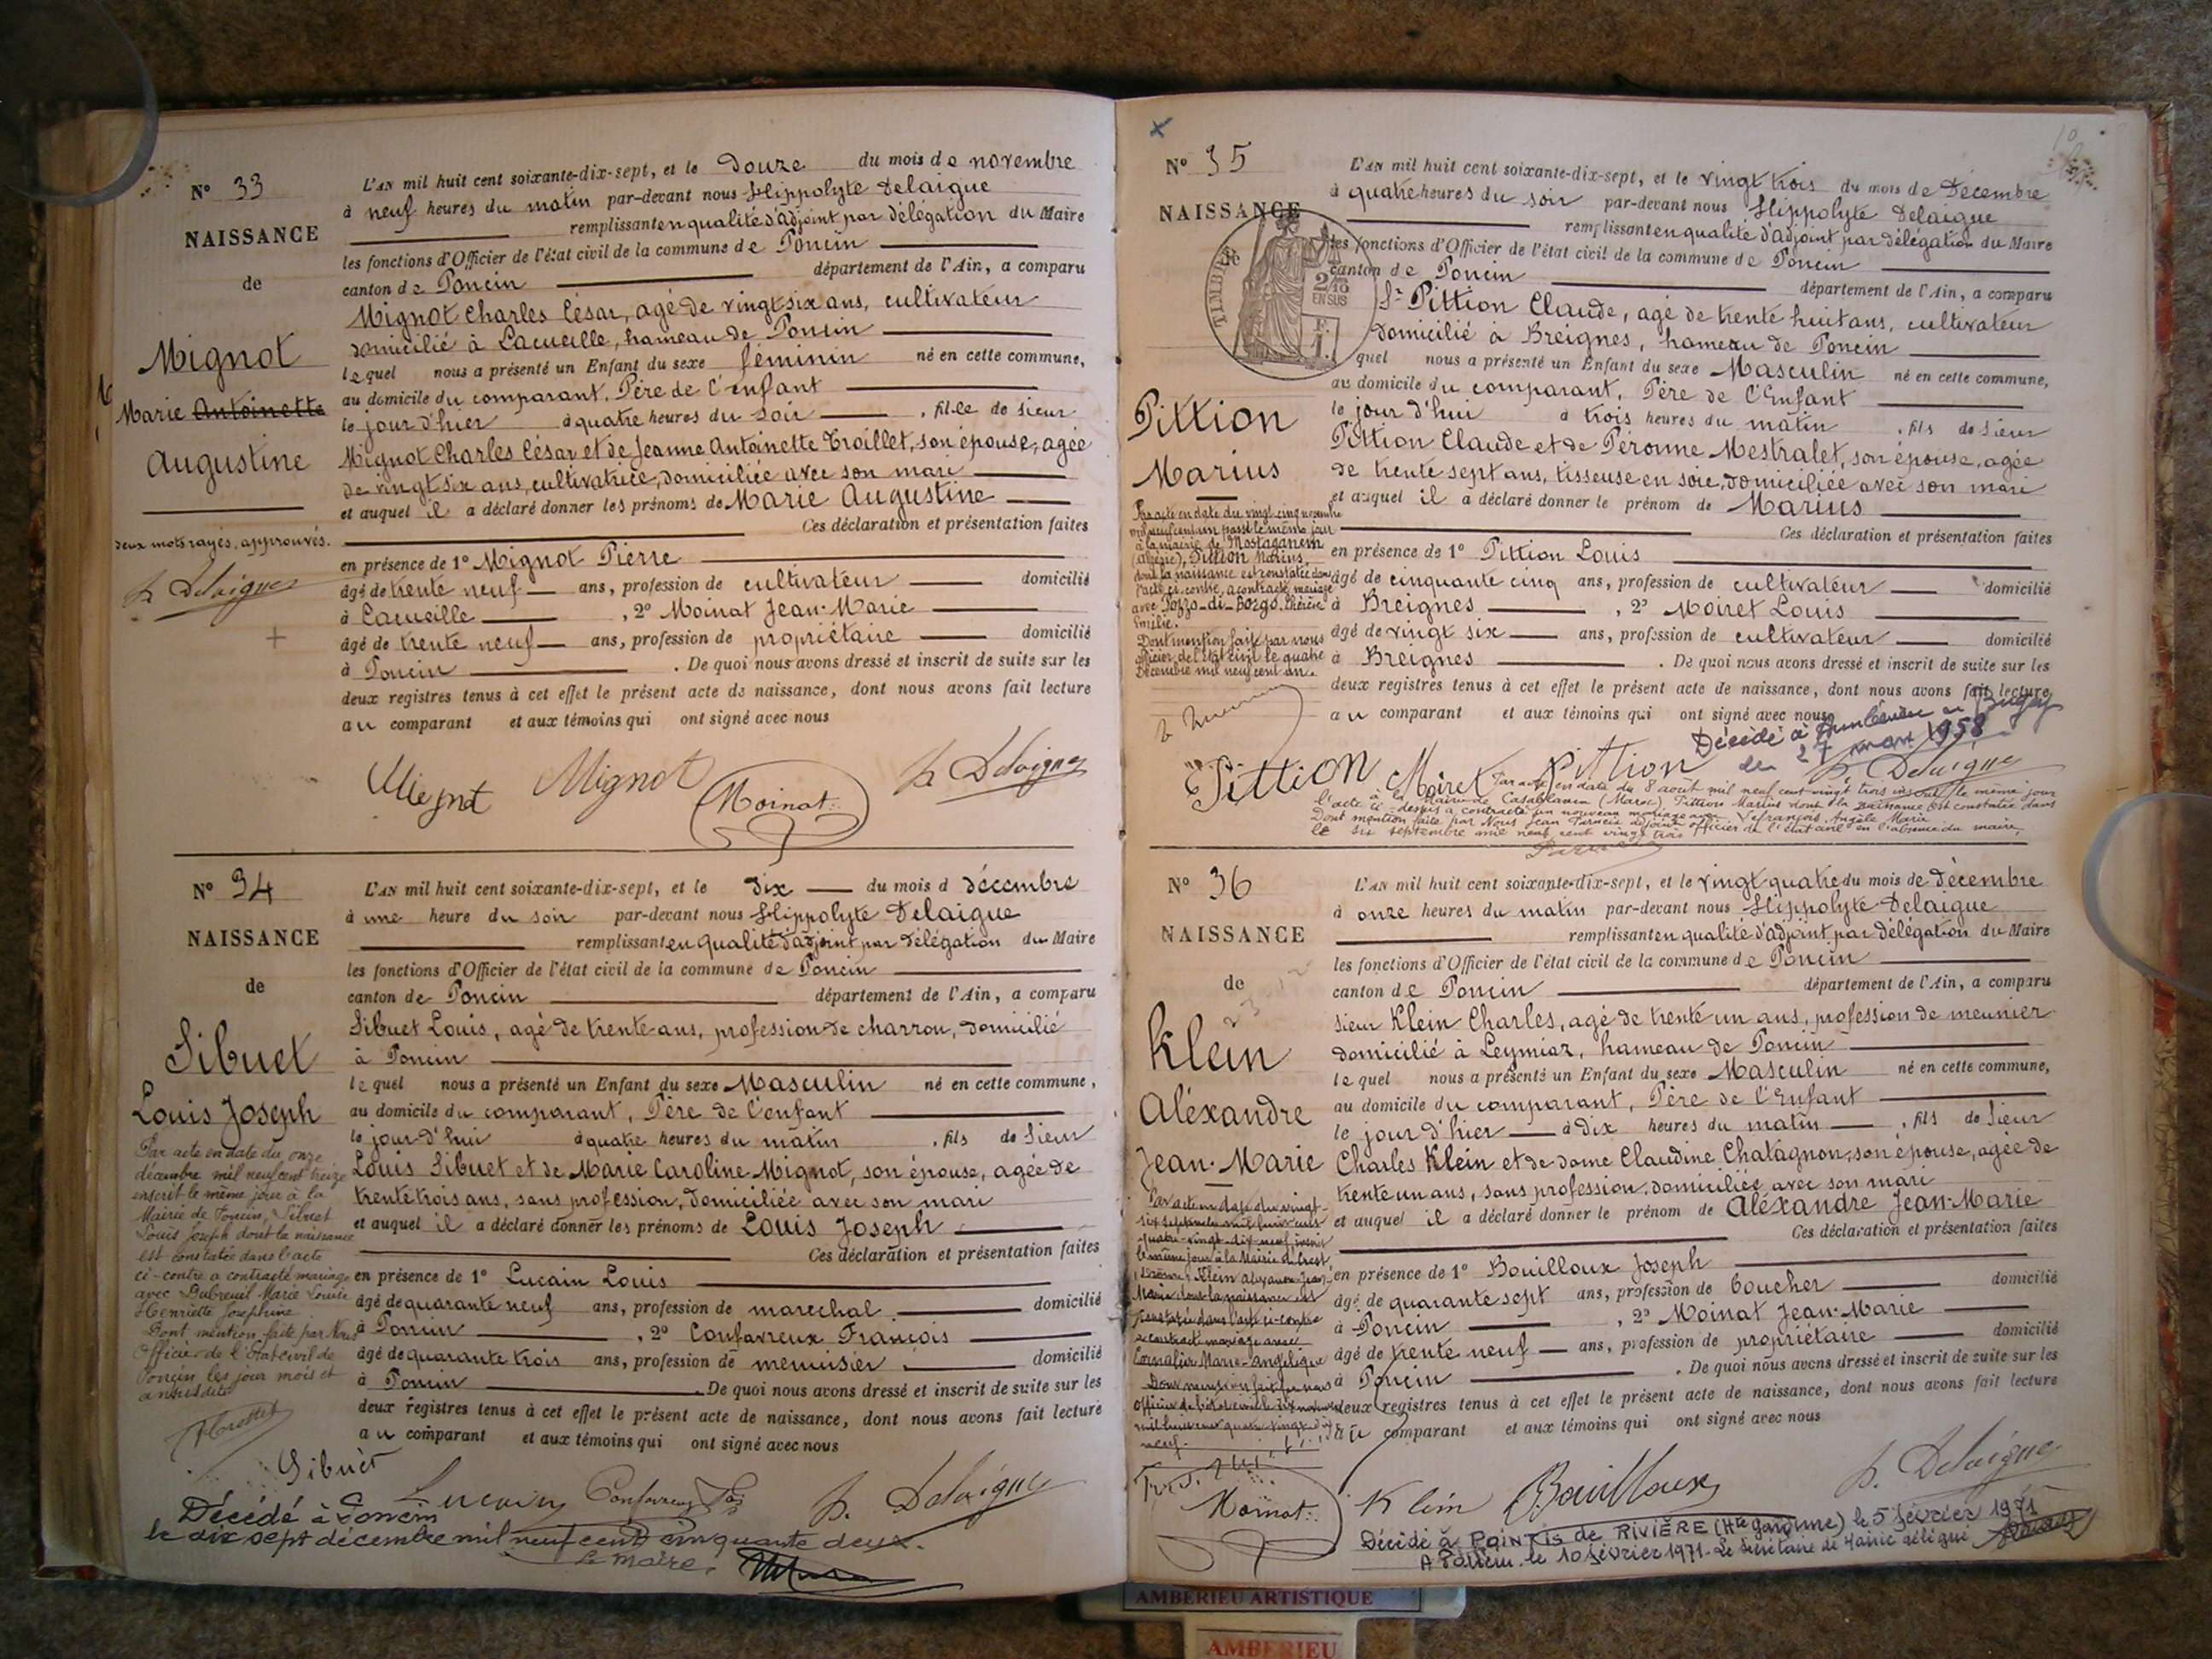 N° 33
NAISSANCE
de
Mignot
Marie Antoinette
Augustine
deux mots rayés, approuvés.
h. Delaigue
L'AN mil huit cent soixante-dix-sept, et le Douze du mois de novembre
à neuf heures du matin par-devant nous Hippolyte Delaigue
remplissant en qualité d'adjoint par délégation du Maire
les fonctions d'Officier de l'état civil de la commune de Poncin
canton de Poncin département de l'Ain, a comparu
Mignot Charles César, agé de vingt six ans, cultivateur
domicilié à Lacueille, hameau de Poncin
lequel nous a présenté un Enfant du sexe féminin né en cette commune,
au domicile du comparant, Père de l'enfant
le jour d'hier à quatre heures du soir , fille de sieur
Mignot Charles César et de Jeanne Antoinette Troillet, son épouse, agée
de vingt six ans, cultivatrice, domiciliée avec son mari
et auquel il a déclaré donner les prénoms de Marie Augustine
Ces déclaration et présentation faites
en présence de 1° Mignot Pierre
âgé de trente neuf ans, profession de cultivateur domicilié
à Lacueille , 2° Moinat Jean-Marie
âgé de trente neuf ans, profession de propriétaire domicilié
à Poncin . De quoi nous avons dressé et inscrit de suite sur les
deux registres tenus à cet effet le présent acte de naissance, dont nous avons fait lecture
au comparant et aux témoins qui ont signé avec nous
Mignot Mignot Moinat h. Delaigue
N° 34
NAISSANCE
de
Sibuet
Louis Joseph
Par acte en date du onze
décembre mil neuf cent treize
inscrit le même jour à la
Mairie de Poncin, Sibuet
Louis Joseph dont la naissance
est constatée dans l'acte
ci-contre a contracté mariage
avec Dubreuil Marie Louise
Henriette Joséphine
Dont mention faite par Nous
Officier de l'Etat civil de
Poncin les jour mois et
an susdits
L'AN mil huit cent soixante-dix-sept, et le Dix du mois d Décembre
à une heure du soir par-devant nous Hippolyte Delaigue
remplissant en qualité d'adjoint par délégation du Maire
les fonctions d'Officier de l'état civil de la commune de Poncin
canton de Poncin département de l'Ain, a comparu
Sibuet Louis, agé de trente ans, profession de charron, domicilié
à Poncin
lequel nous a présenté un Enfant du sexe Masculin né en cette commune,
au domicile du comparant, Père de l'enfant
le jour d'hui à quatre heures du matin , fils de Sieur
Louis Sibuet et de Marie Caroline Mignot, son épouse, agée de
trente trois ans, sans profession, domiciliée avec son mari
et auquel il a déclaré donner les prénoms de Louis Joseph
Ces déclaration et présentation faites
en présence de 1° Lucain Louis
âgé de quarante neuf ans, profession de marechal domicilié
à Poncin , 2° Confavreux François
âgé de quarante trois ans, profession de menuisier domicilié
à Poncin . De quoi nous avons dressé et inscrit de suite sur les
deux registres tenus à cet effet le présent acte de naissance, dont nous avons fait lecture
au comparant et aux témoins qui ont signé avec nous
Sibuet Lucain Confavreux h. Delaigue
Décédé à Poncin
le dix sept décembre mil neuf cent cinquante deux.
Le Maire,
N° 35
NAISSANCE
de
TIMBRE
2/10
EN SUS
Pittion
Marius
Par acte en date du vingt cinq novembre
mil neuf cent un passé le même jour
à la mairie de Mostaganem
(Algérie), Pittion Marius,
dont la naissance est constatée dans
l'acte ci-contre, a contracté mariage
avec Pozzo-di-Borgo, Thérèse
Emilie.
Dont mention faite par nous
officier de l'état civil le quatre
Décembre mil neuf cent un.
L'AN mil huit cent soixante-dix-sept, et le vingt trois du mois de Décembre
à quatre heures du soir par-devant nous Hippolyte Delaigue
remplissant en qualité d'adjoint par délégation du Maire
les fonctions d'Officier de l'état civil de la commune de Poncin
canton de Poncin département de l'Ain, a comparu
Sr Pittion Claude, agé de trente huit ans, cultivateur
domicilié à Breignes, hameau de Poncin
quel nous a présenté un Enfant du sexe Masculin né en cette commune,
au domicile du comparant, Père de l'Enfant
le jour d'hui à trois heures du matin , fils de Sieur
Pittion Claude et de Péronne Mestralet, son épouse, agée
de trente sept ans, tisseuse en soie, domiciliée avec son mari
et auquel il a déclaré donner le prénom de Marius
Ces déclaration et présentation faites
en présence de 1° Pittion Louis
âgé de cinquante cinq ans, profession de cultivateur domicilié
à Breignes , 2° Moiret Louis
âgé de vingt six ans, profession de cultivateur domicilié
à Breignes . De quoi nous avons dressé et inscrit de suite sur les
deux registres tenus à cet effet le présent acte de naissance, dont nous avons fait lecture
au comparant et aux témoins qui ont signé avec nous
Décédé à Ambérieu en Bugey
le 27 mars 1958
Pittion Moiret Pittion h. Delaigue
Par acte en date du 8 août mil neuf cent vingt trois inscrit le même jour
à la Mairie de Casablanca (Maroc), Pittion Marius dont la naissance est constatée dans
l'acte ci-dessus a contracté un nouveau mariage avec Lefrançois Angèle Maria
Dont mention faite par Nous Jean adjoint officier de l'état civil en l'absence du maire,
le six septembre mil neuf cent vingt trois
N° 36
NAISSANCE
de
Klein
Aléxandre
Jean-Marie
Par acte en date du vingt-
six septembre mil huit cent
quatre-vingt-dix neuf inscrit
le même jour à la Mairie de Crest
(Drôme), Klein Alexandre Jean-
Marie dont la naissance est
constatée dans l'acte ci-contre
a contracté mariage avec
Cornalier Marie-Angélique
Dont mention faite par nous
officier de l'état civil le dix
mil huit cent quatre vingt dix
neuf.
L'AN mil huit cent soixante-dix-sept, et le vingt quatre du mois de Décembre
à onze heures du matin par-devant nous Hippolyte Delaigue
remplissant en qualité d'adjoint par délégation du Maire
les fonctions d'Officier de l'état civil de la commune de Poncin
canton de Poncin département de l'Ain, a comparu
Sieur Klein Charles, agé de trente un ans, profession de meunier
domicilié à Leymiaz, hameau de Poncin
lequel nous a présenté un Enfant du sexe Masculin né en cette commune,
au domicile du comparant, Père de l'Enfant
le jour d'hier à dix heures du matin , fils de Sieur
Charles Klein et de dame Claudine Chatagnon, son épouse, agée de
trente un ans, sans profession, domiciliée avec son mari
et auquel il a déclaré donner le prénom de Aléxandre Jean-Marie
Ces déclaration et présentation faites
en présence de 1° Bouilloux Joseph
âgé de quarante sept ans, profession de boucher domicilié
à Poncin , 2° Moinat Jean-Marie
âgé de trente neuf ans, profession de propriétaire domicilié
à Poncin . De quoi nous avons dressé et inscrit de suite sur les
deux registres tenus à cet effet le présent acte de naissance, dont nous avons fait lecture
au comparant et aux témoins qui ont signé avec nous
Moinat Klein Bouilloux h. Delaigue
Décédé à POINTIS de RIVIÈRE (Hte Garonne) le 5 février 1971
A Poncin le 10 février 1971 - Le Secrétaire de Mairie délégué
AMBERIEU ARTISTIQUE
AMBERIEU